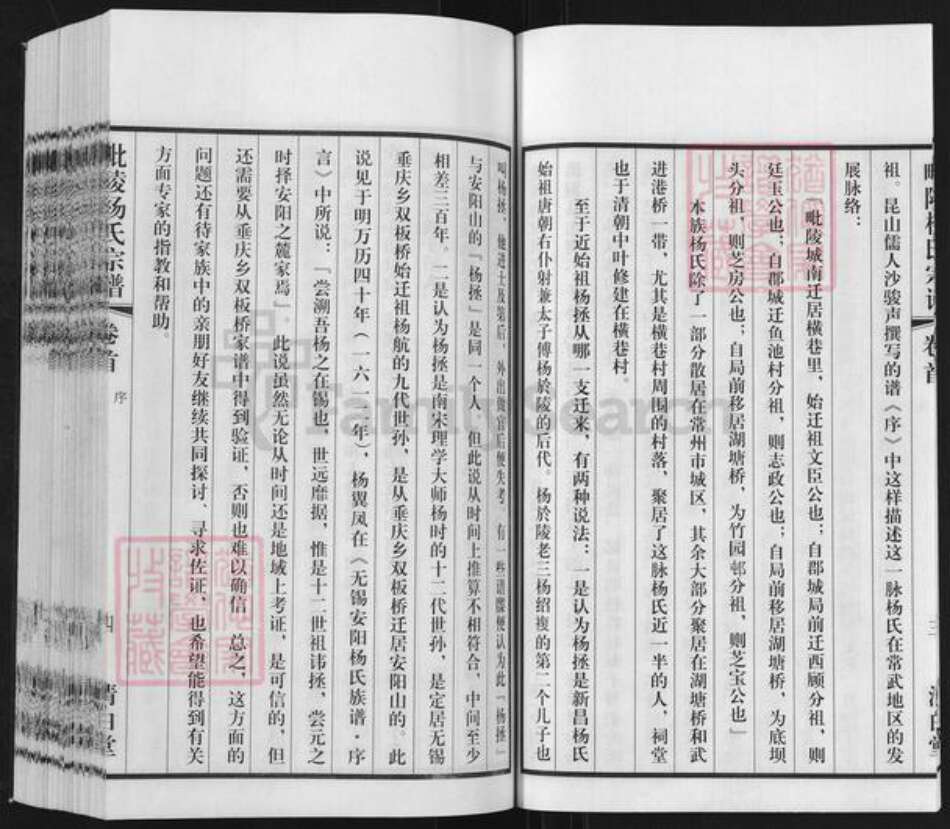 祖。昆山儒人沙骏声撰写的谱《序》中这样描述这一脉杨氏在常武地区的发
展脉络：
毗陵城南迁居横巷里，始迁祖文臣公也；自郡城局前迁西顾分祖，则
廷玉公也；自郡城迁鱼池村分祖，则志政公也；自局前移居湖塘桥，为底坝
头分祖，则芝房公也；自局前移居湖塘桥，为竹园邨分祖，则芝宝公也」
本族杨氏除了一部分散居在常州市城区，其余大部分聚居在湖塘桥和武
进港桥一带，尤其是横巷村周围的村落，聚居了这脉杨氏近一半的人，祠堂
也于清朝中叶修建在横巷村。
至于近始祖杨拯从哪一支迁来，有两种说法：一是认为杨拯是新昌杨氏
始祖唐朝右仆射兼太子傅杨於陵的后代。杨於陵老三杨绍複的第二个儿子也
叫杨拯，他进士及第后，外出做官后便失考，有一些谱牒便认为此「杨拯」
与安阳山的「杨拯」是同一个人。但此说从时间上推算不相符合，中间至少
相差三百年。二是认为杨拯是南宋理学大师杨时的十二代世孙，是定居无锡
垂庆乡双板桥始迁祖杨航的九代世孙，是从垂庆乡双板桥迁居安阳山的。此
说见于明万历四十年（一六一二年），杨翼凤在《无锡安阳杨氏族谱·序
言》中所说：「尝溯吾杨之在锡也，世远靡据，惟是十二世祖讳拯，尝元之
时择安阳之麓家焉」此说虽然无论从时间还是地域上考证，是可信的，但
还需要从垂庆乡双板桥家谱中得到验证，否则也难以确信。总之，这方面的
问题还有待家族中的亲朋好友继续共同探讨、寻求佐证，也希望能得到有关
方面专家的指教和帮助。
毗陵杨氏宗谱
卷首
序
四
清白堂
FamilySearch